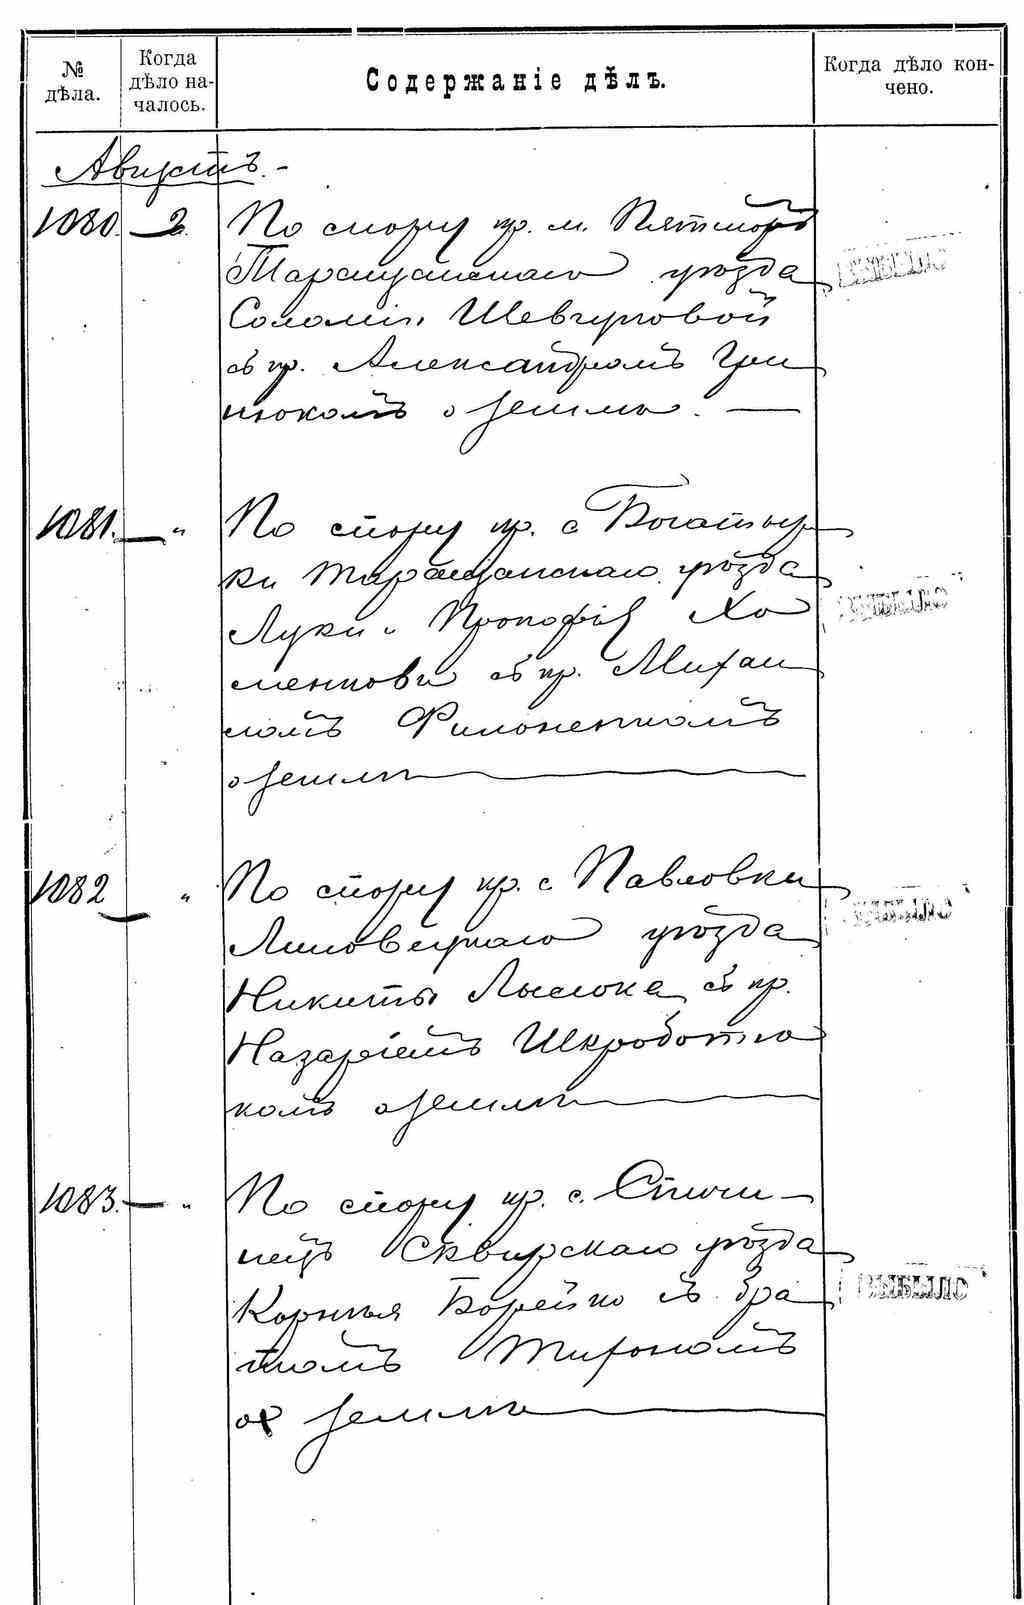 № дѣла.
Когда дѣло на-
чалось.
Содержаніе дѣлъ.
Когда дѣло кон-
чено.
Августъ. -
1080. 2.
По спору кр. м. Пятигоръ
Таращанскаго уѣзда
Соломіи Шевчуковой
съ кр. Александромъ Гри
нюкомъ о землѣ. —
1081. — "
По спору кр. с. Богатыр
ки Таращанскаго уѣзда
Луки и Прокофія Хо
менковы съ кр. Михаи
ломъ Филоненкомъ
о землѣ —
1082 — "
По спору кр. с. Павловки
Липовецкаго уѣзда
Никиты Лысюка съ кр.
Назаріемъ Шкроботю
комъ о землѣ —
1083. — "
По спору кр. с. Спичи-
нецъ Сквирскаго уѣзда
Корнѣя Борейко съ бра
томъ Тифономъ
о землѣ —